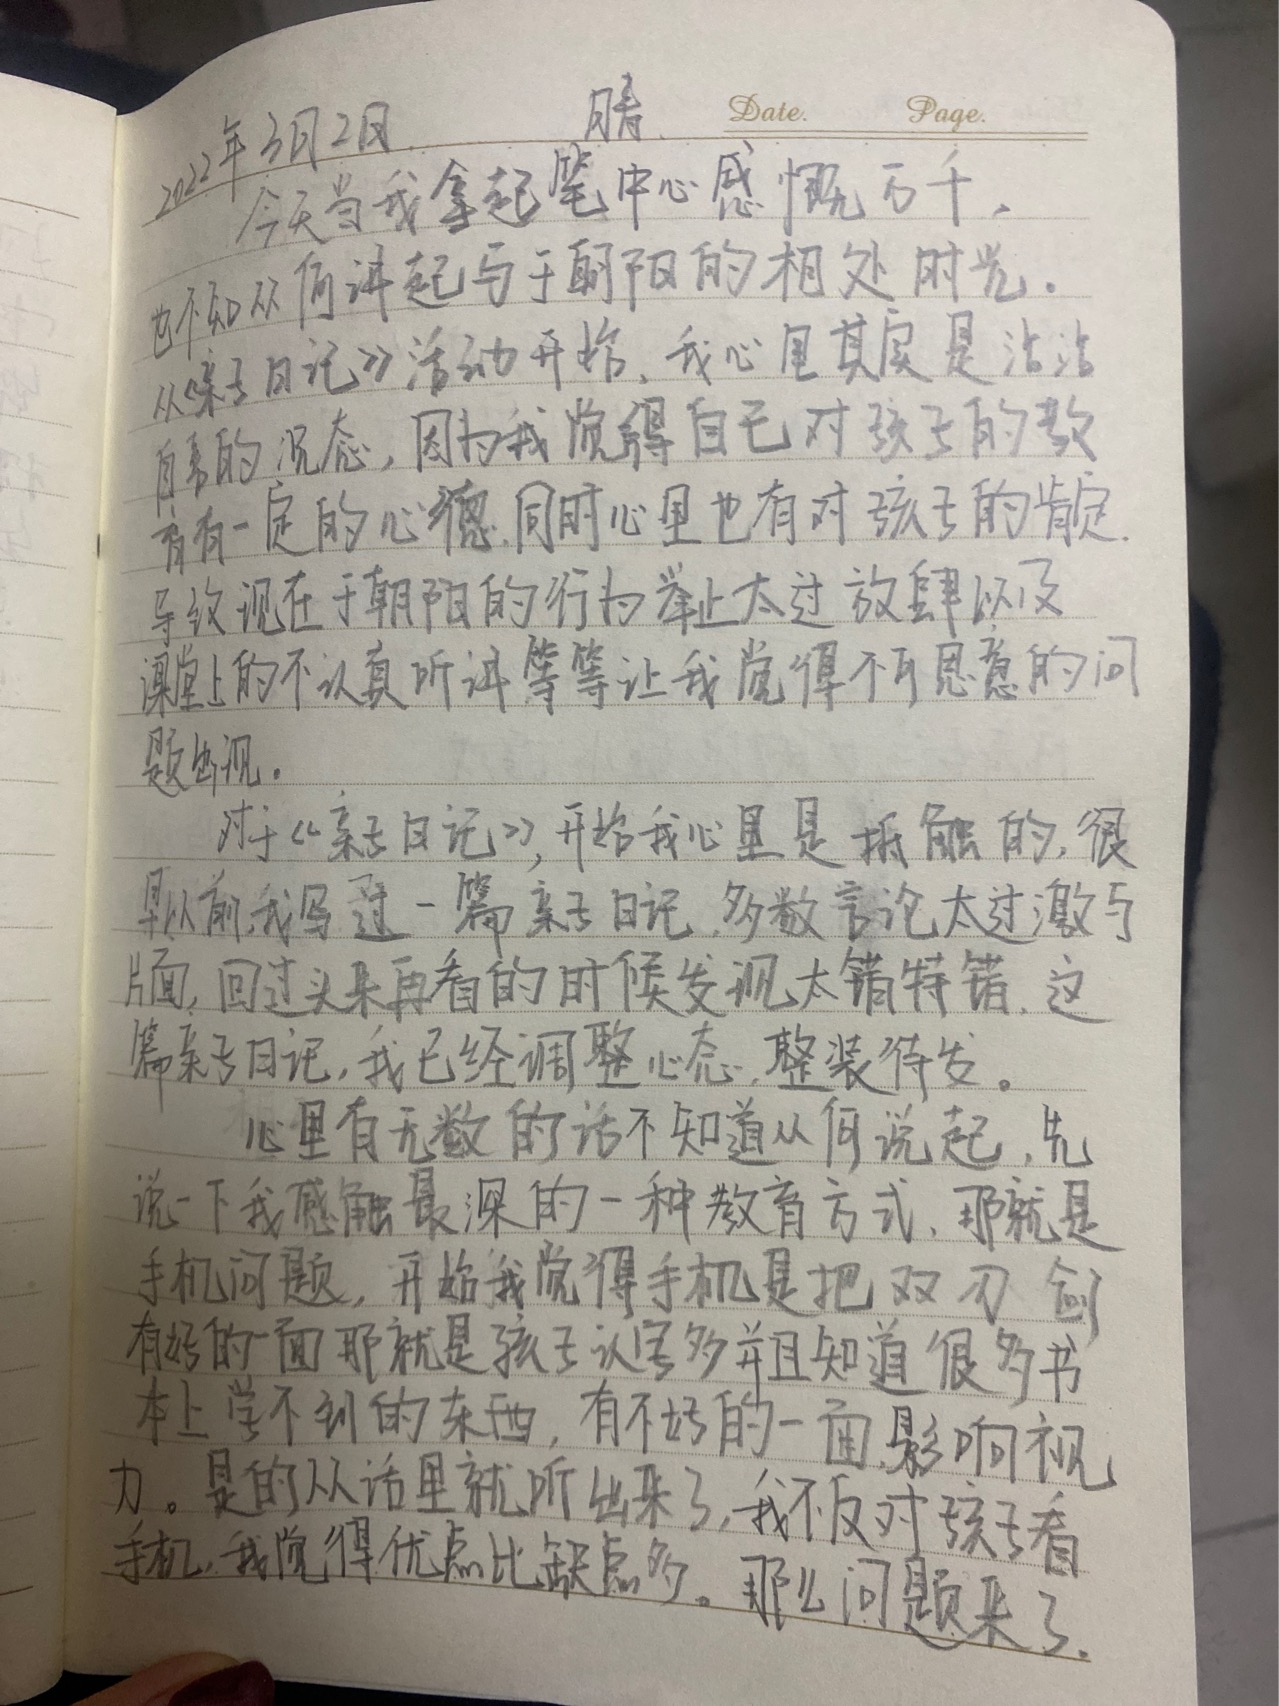 Date. Page.
2022年3月2日 晴
今天当我拿起笔中心感慨万千，
也不知从何讲起与于朝阳的相处时光.
从《亲子日记》活动开始，我心里其实是沾沾
自喜的沉态，因为我觉得自己对孩子的教
育有一定的心得.同时心里也有对孩子的肯定.
导致现在于朝阳的行为举止太过放肆以及
课堂上的不认真听讲等等让我觉得不可思意的问
题出现。
对于《亲子日记》,开始我心里是抵触的,很
早以前,我写过一篇亲子日记,多数言论太过激与
片面,回过头来再看的时候发现太错特错.这
篇亲子日记,我已经调整心态,整装待发。
心里有无数的话不知道从何说起,先
说一下我感触最深的一种教育方式,那就是
手机问题,开始我觉得手机是把双刃剑
有好的一面那就是孩子认字多并且知道很多书
本上学不到的东西,有不好的一面,影响视
力。是的从话里就听出来了,我不反对孩子看
手机,我觉得优点比缺点多。那么问题来了.